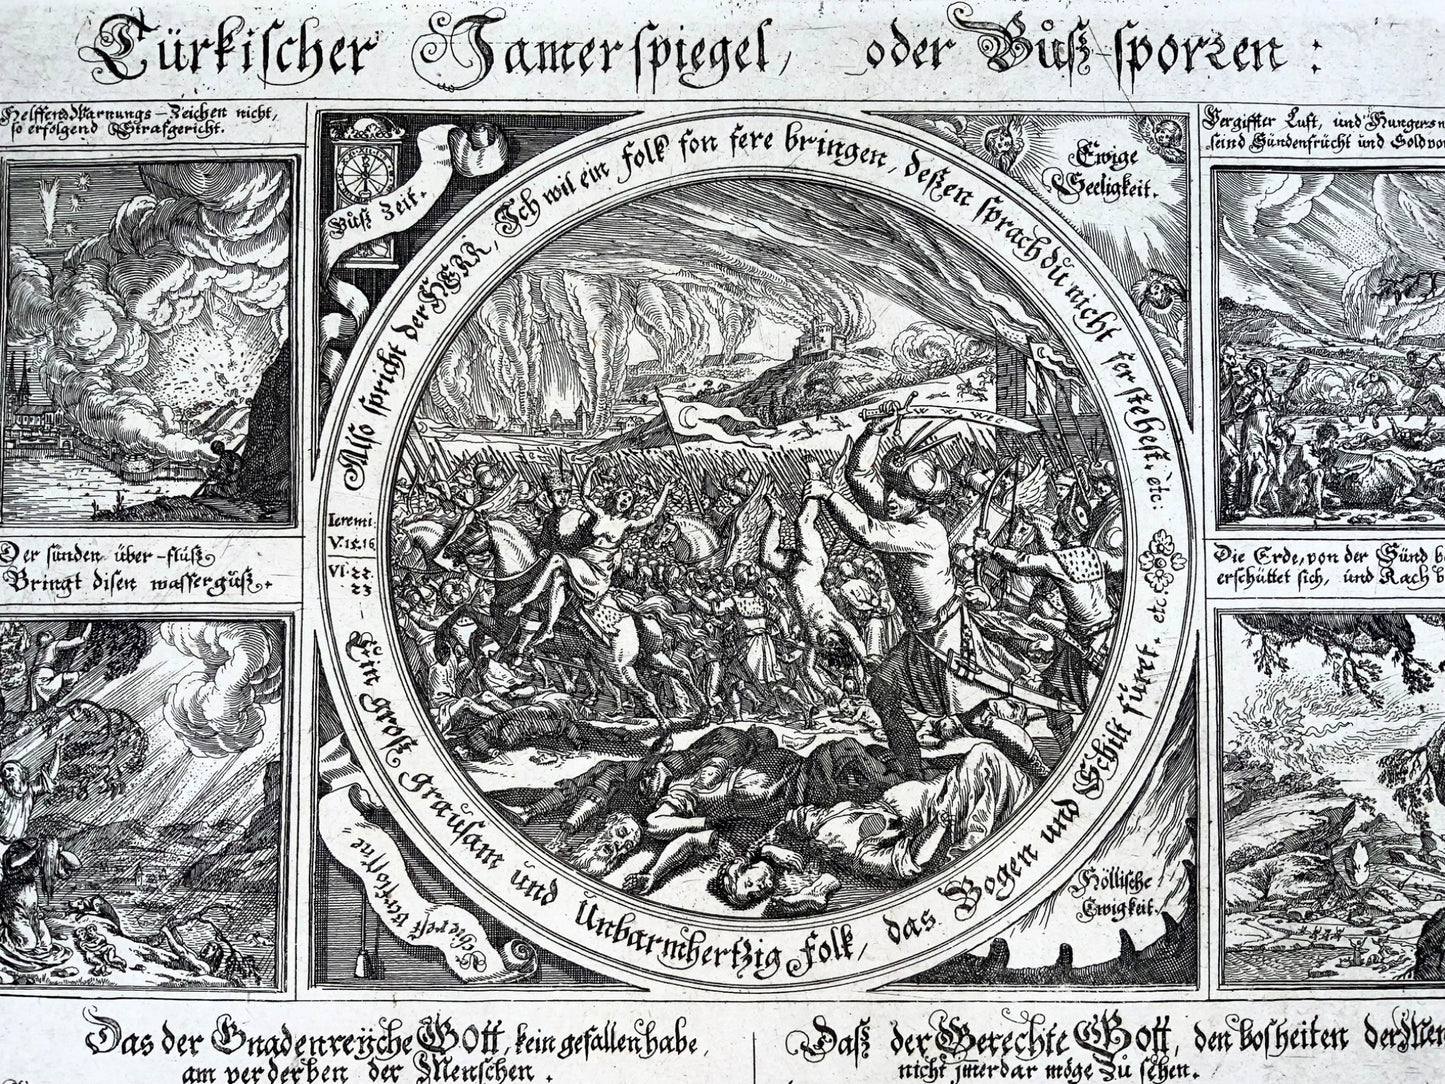 Türkischer Jamerspiegel, oder Bůß-sporren:
Helffend Warnungs-Zeichen nicht,
so erfolgend Strafgericht.
Vergiffter Luft, und Hungers
seind Sündenfrücht und Sold
Bůß Zeit.
Ewige
Seeligkeit.
Also spricht der HERR, Ich wil ein folk fon fere bringen, deßen sprach du nicht ferstehest. etc:
Ieremi.
V. 15. 16
VI. 22.
23
Ein groß grausam und Unbarmhertzig folk, das Bogen und Schilt füret. etc.
Der sünden über-fluß
Bringt disen wasserguß.
Die Erde, von der Sünd
erschüttet sich, und Rach
Höllische
Ewigkeit.
Das der Gnadenreÿche Gott, kein gefallen habe,
am verderben der Menschen.
Daß der Gerechte Gott, den bosheiten der
nicht jmerdar möge Zu sehen.